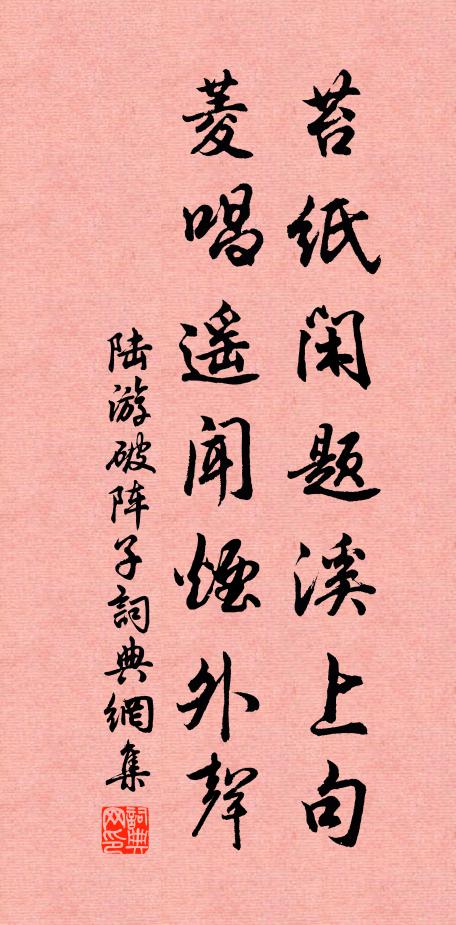 苔纸闲题溪上句
菱唱遥闻煙外聲
陆游破阵子詞典網集
詞典网印